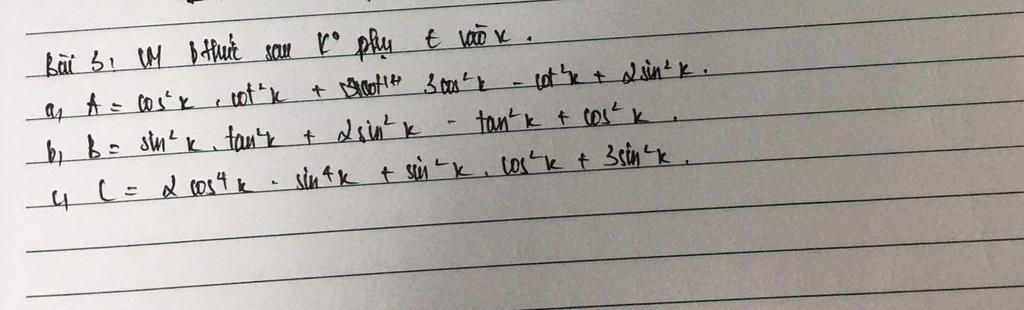 Bài 3: CM bthức sau k° phụ t vào x.
a, A = cos²x . cot²x + 3cos²x - cot²x + 2sin²x.
b, B = sin²x . tan²x + 2sin²x - tan²x + cos²x.
c, C = 2cos⁴x - sin⁴x + sin²x . cos²x + 3sin²x.